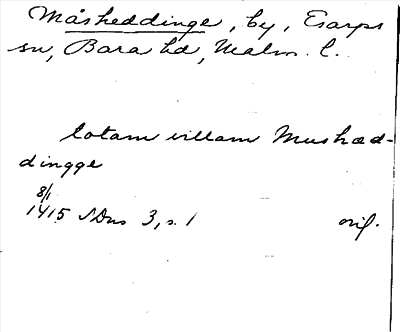 Måsheddinge, by, Esarps
sn, Bara hd, Malm. l.
totam villam Mushæd-
dingge
8/1
1415 SDns 3, s. 1 orig.